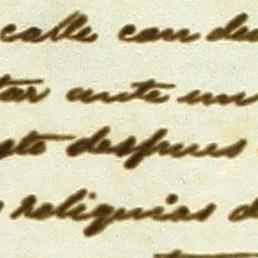 calle con de
tar ante un
despues
reliquias d